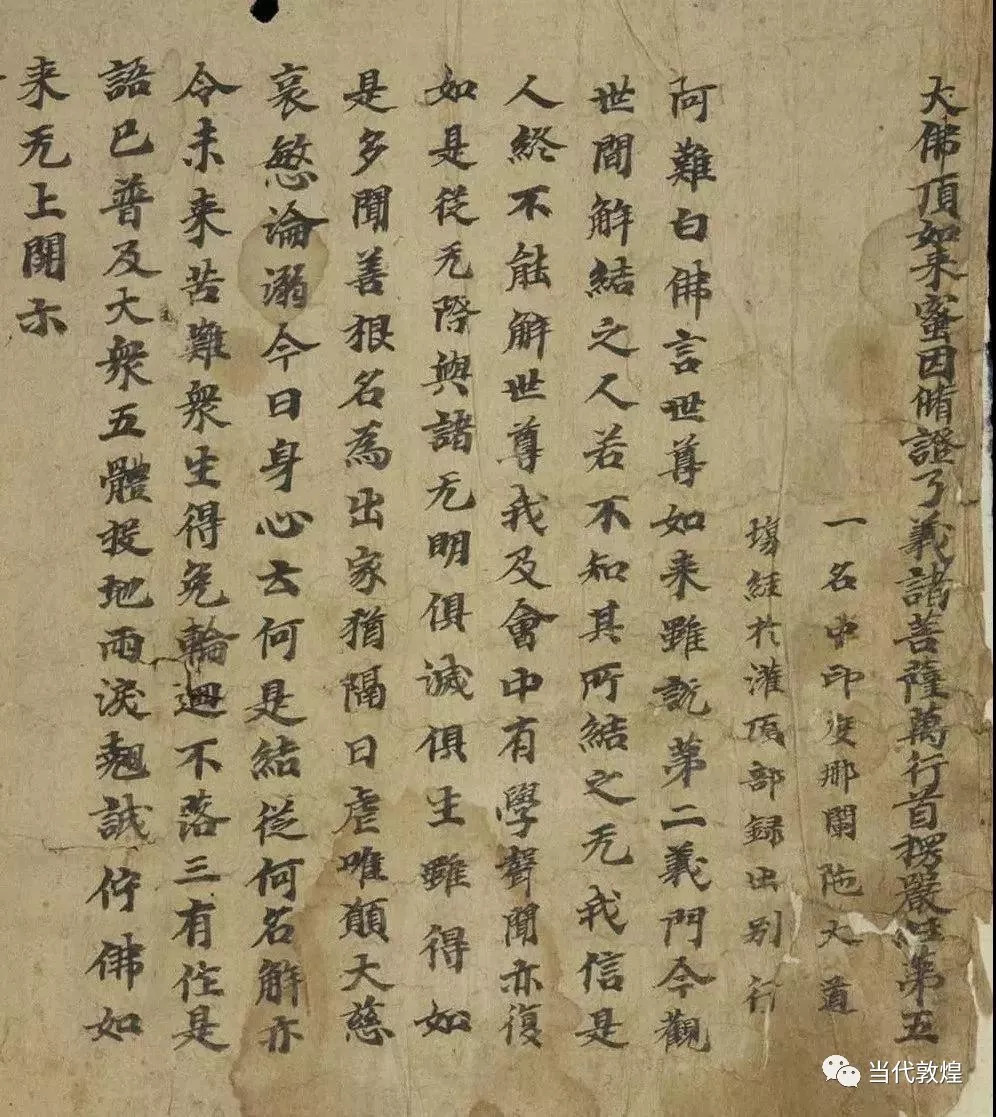 大佛頂如来蜜因脩證了義諸菩薩萬行首楞嚴經第五
一名中印度那闌陁大道
場經於灌頂部録出别行
阿難白佛言世尊如来雖説苐二義門今觀
世間解結之人若不知其所結之无我信是
人終不能解世尊我及會中有學聲聞亦復
如是從无際與諸无明俱滅俱生雖得如
是多聞善根名為出家猶隔日虐唯願大慈
哀慜淪溺今日身心云何是結從何名解亦
令未来苦難衆生得免輪迴不落三有作是
語已普及大衆五體投地雨淚翹誠佇佛如
来无上開示
当代敦煌